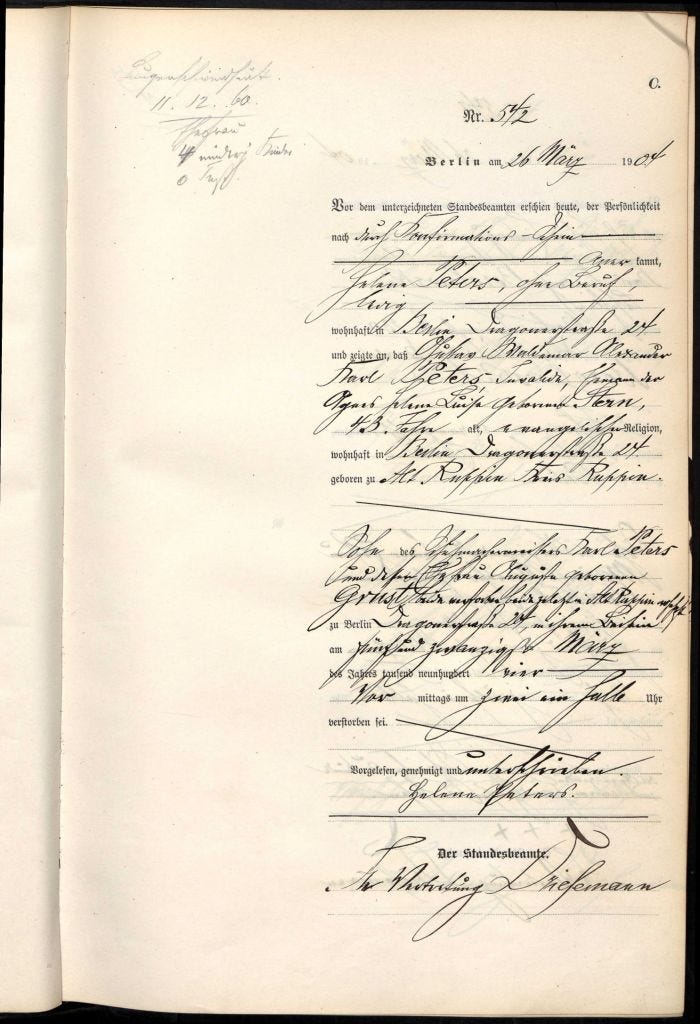 Lungenschwindsucht.
11. 12. 60.
Ehefrau
4 minderj. Kinder
0
C.
Nr. 542
Berlin am 26 März 1904
Vor dem unterzeichneten Standesbeamten erschien heute, der Persönlichkeit
nach durch Konfirmations-Schein
aner kannt,
Helene Peters, ohne Beruf,
ledig
wohnhaft in Berlin Dragonerstraße 24
und zeigte an, daß Gustav Waldemar Alexander
Karl Peters, Invalide, Ehemann der
Agnes Helene Luise geborenen Stern,
43 Jahre alt, evangelischer Religion,
wohnhaft in Berlin Dragonerstraße 24
geboren zu Alt Ruppin Kreis Ruppin.
Sohn des Schuhmachermeisters Karl Peters
und dessen Ehefrau Auguste geborenen
beide verstorben beide zuletzt in Alt Ruppin wohnhaft
zu Berlin Dragonerstraße 24, in ihrem Beisein,
am fünf und zwanzigsten März
des Jahres tausend neunhundert vier
Vor mittags um zwei ein halb Uhr
verstorben sei.
Vorgelesen, genehmigt und unterschrieben.
Helene Peters.
Der Standesbeamte.
In Vertretung